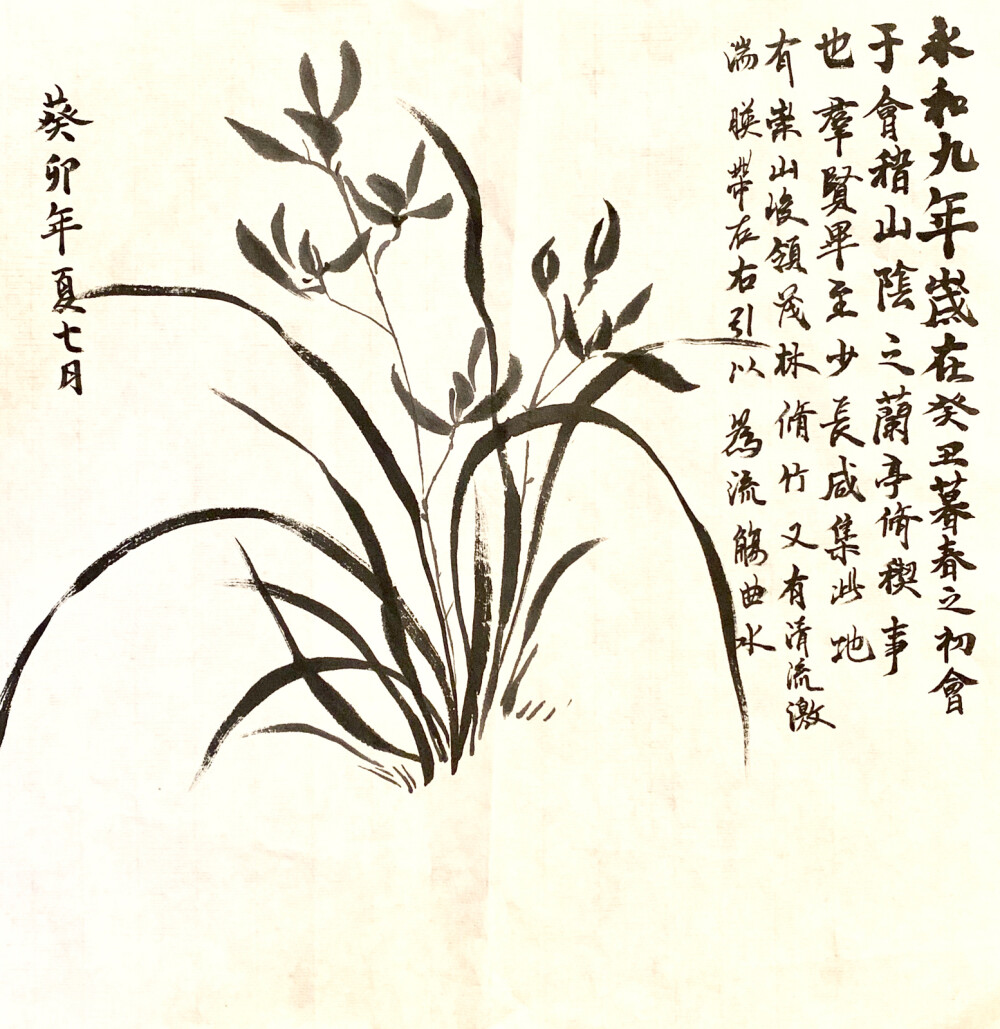 永和九年歲在癸丑暮春之初會
于會稽山陰之蘭亭脩稧事
也羣賢畢至少長咸集此地
有崇山峻領茂林脩竹又有清流激
湍暎帶左右引以為流觴曲水
癸卯年夏七月